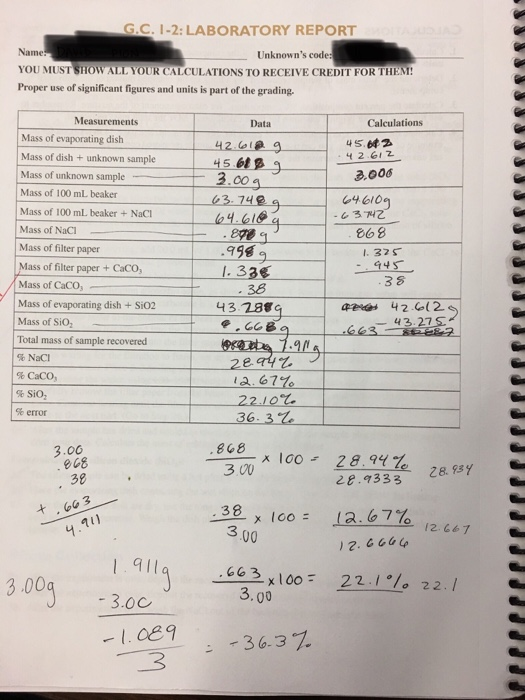 G.C. I-2: LABORATORY REPORT
Name: Unknown's code:
YOU MUST SHOW ALL YOUR CALCULATIONS TO RECEIVE CREDIT FOR THEM!
Proper use of significant figures and units is part of the grading.
Measurements Data Calculations
Mass of evaporating dish 42.612 g 45.612
Mass of dish + unknown sample g - 42.612
Mass of unknown sample 3.00 g 3.000
Mass of 100 mL beaker 63.742 g 64.610g
Mass of 100 mL beaker + NaCl 64.610 g - 63.742
Mass of NaCl g .868
Mass of filter paper g 1.325
Mass of filter paper + CaCO3 - .945
Mass of CaCO3 .38 .38
Mass of evaporating dish + SiO2 g 42.612g
Mass of SiO2 g - 43.275
Total mass of sample recovered 1.911g .663
% NaCl 28.94%
% CaCO3 12.67%
% SiO2 22.10%
% error 36.3%
3.00 .868 / 3.00 x 100 = 28.94% 28.934
.868 28.9333
.38
+ .663 .38 / 3.00 x 100 = 12.67% 12.667
4.911 12.6666
1.911g .663 / 3.00 x100 = 22.1% 22.1
3.00g - 3.00
-1.089 / 3 = -36.3%